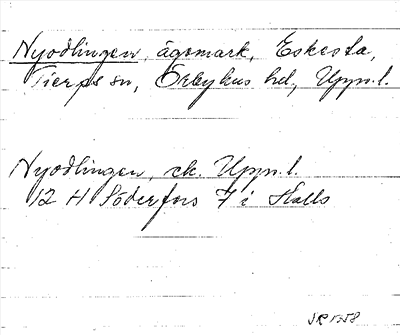 Nyodlingen, ägomark, Eskesta,
Tierps sn, Örbyhus hd, Uppn. l.
Nyodlingen, ek. Uppn. l.
12 H Söderfors 7 i Halls
1958